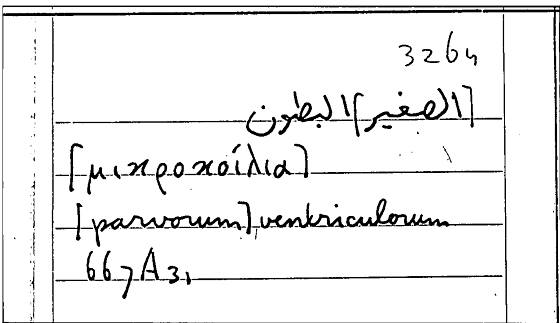 3264
[الصغير] البطون
[μικροκοίλια]
[parvorum] ventriculorum
667A31